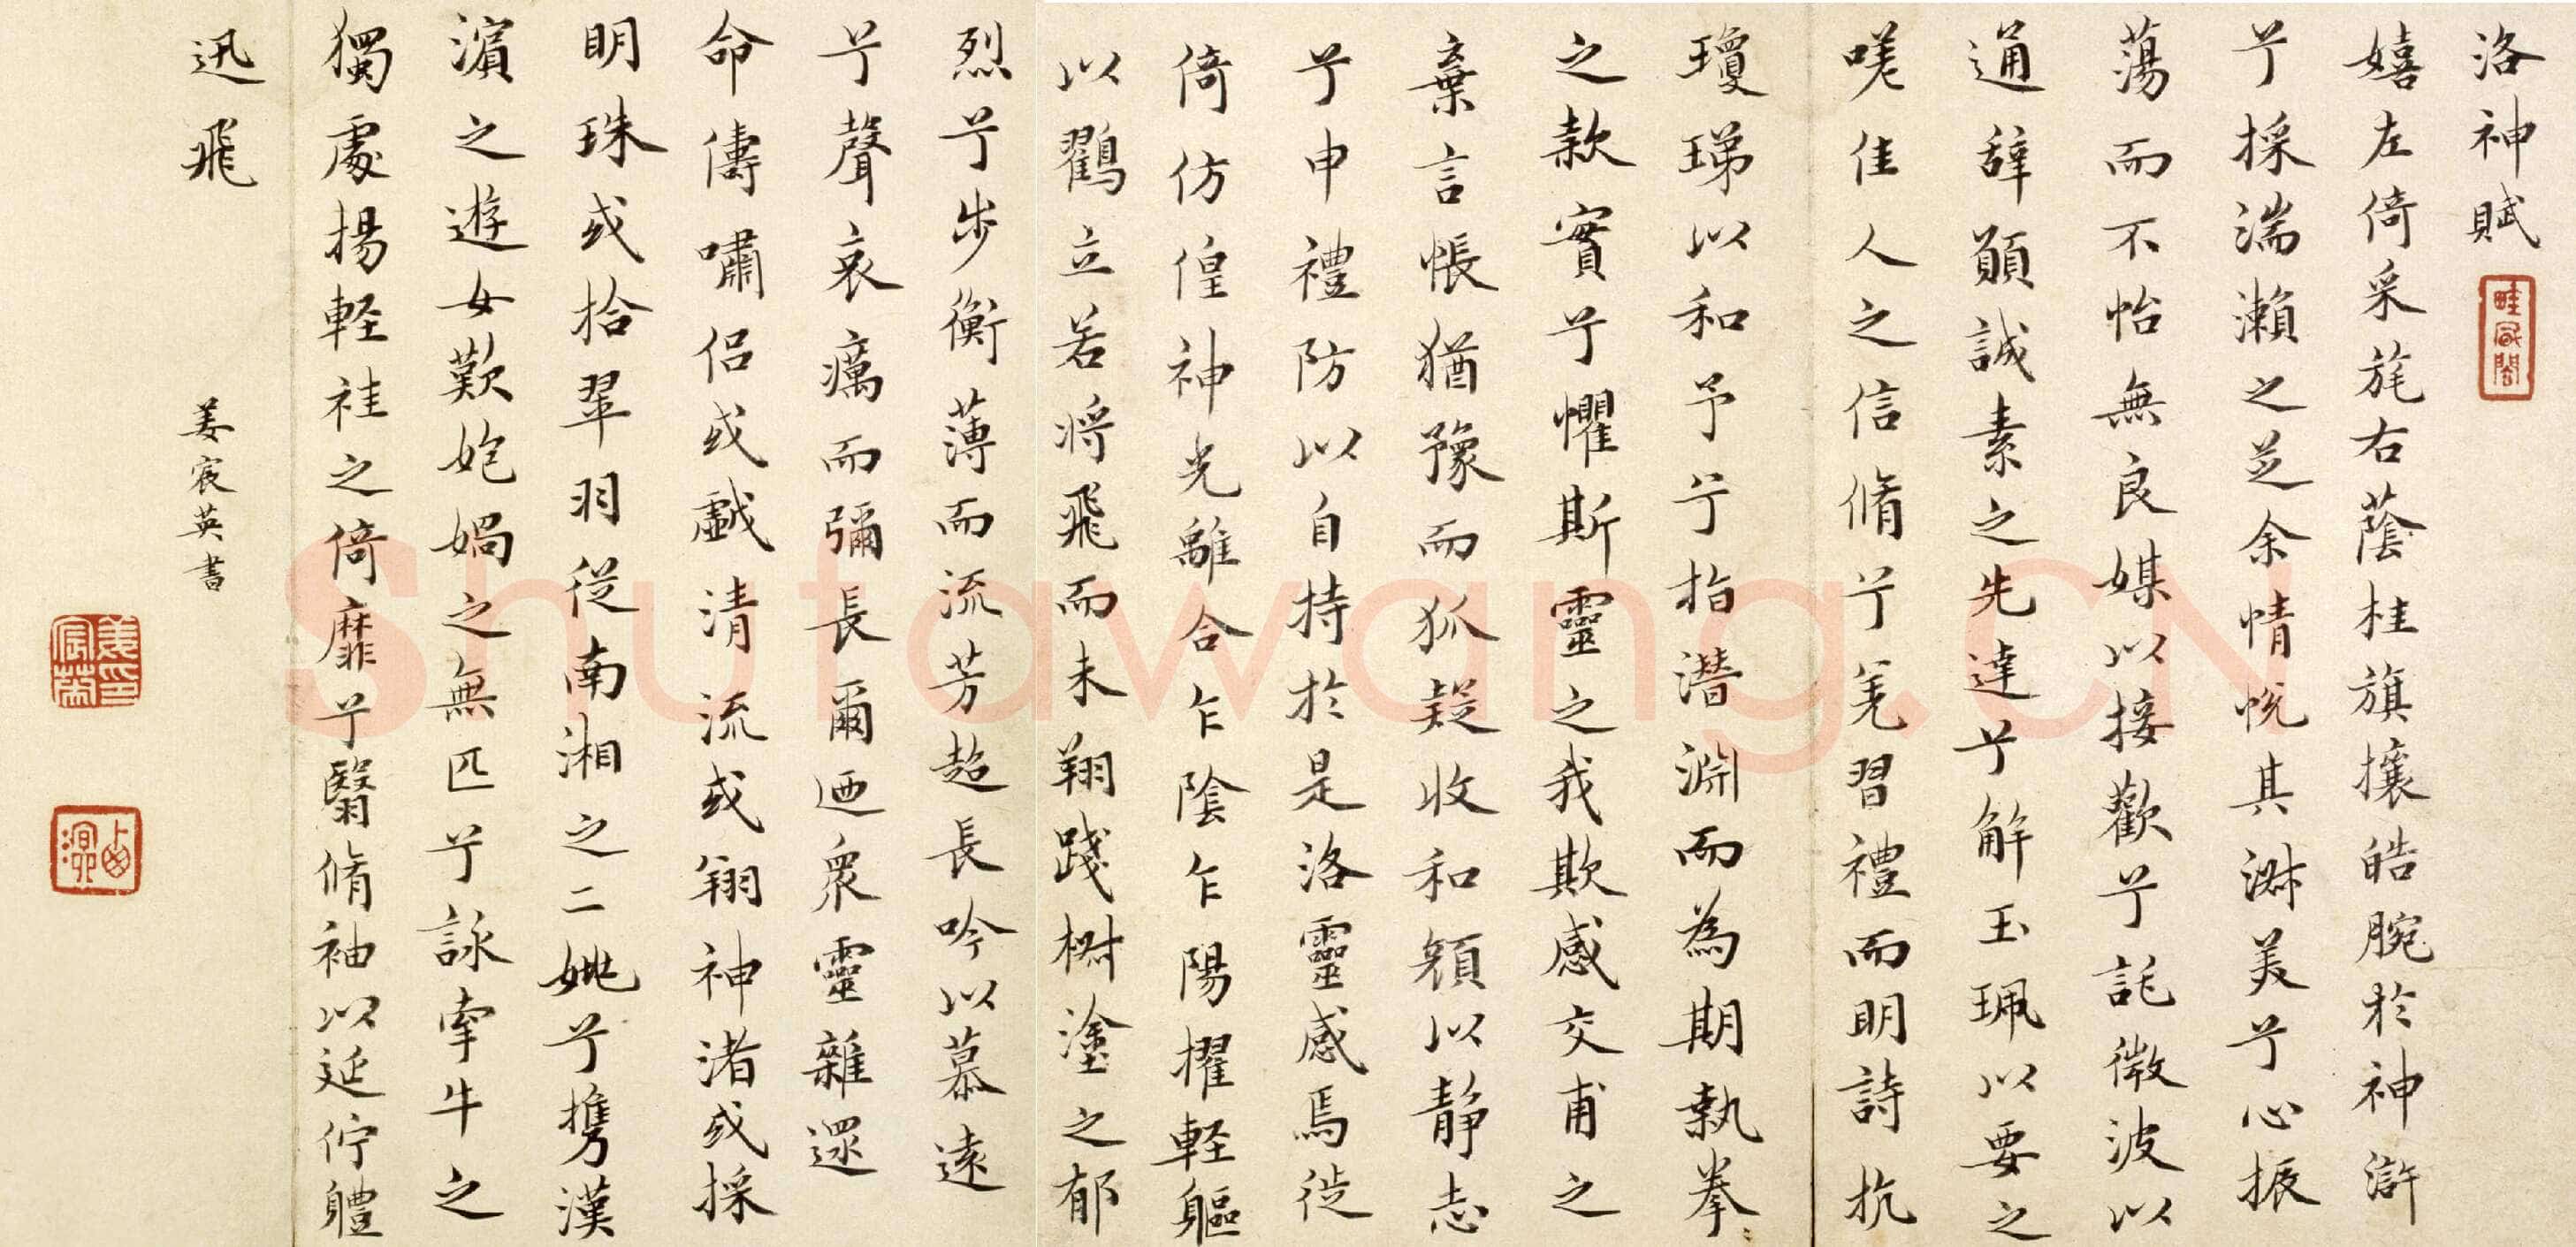 洛神賦
嬉左倚采旄右蔭桂旗攘皓腕於神滸
兮採湍瀨之芝余情悅其淑美兮心振
蕩而不怡無良媒以接歡兮託微波以
通辭願誠素之先達兮解玉珮以要之
嗟佳人之信脩兮羌習禮而明詩抗
瓊珶以和予兮指潛淵而為期執拳
之款實兮懼斯靈之我欺感交甫之
棄言悵猶豫而狐疑收和顏以靜志
兮申禮防以自持於是洛靈感焉徙
倚仿偟神光離合乍陰乍陽擢軽軀
以鸖立若将飛而未翔踐椒塗之郁
烈兮步衡薄而流芳超長吟以慕遠
兮聲哀癘而彌長爾迺衆靈雜遝
命儔嘯侶或戲清流或翔神渚或採
明珠或拾翠羽從南湘之二姚兮攜漢
濵之遊女歎匏媧之無匹兮詠牽牛之
獨處揚軽袿之倚靡兮翳脩袖以延佇軆
迅飛
姜宸英書
畦風閣
姜宸英印
Shufawang.CN